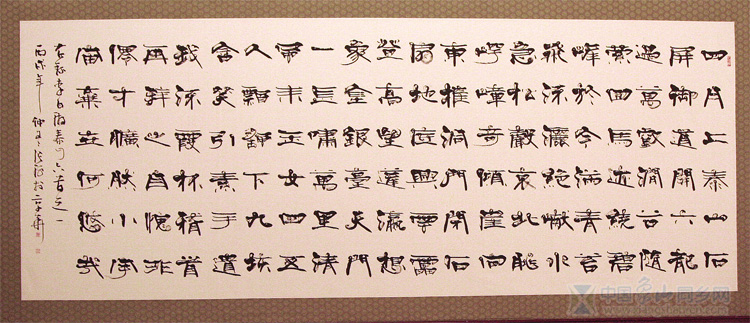 四月上泰山石
屏御道開六龍
過萬壑澗谷隨
縈回馬迹繞碧
峰於今滿青苔
飛流灑絕巘水
急松聲哀北眺
崿嶂奇傾崖向
東摧洞門閉石
扇地底興雲雷
登高望蓬瀛想
象金銀臺天門
一長嘯萬里清
風來玉女四五
人飄飖下九垓
含笑引素手遺
我流霞杯稽首
再拜之自愧非
僊才曠然小宇
宙棄世何悠哉
右錄李白游泰山六首之一
丙戌年仲夏